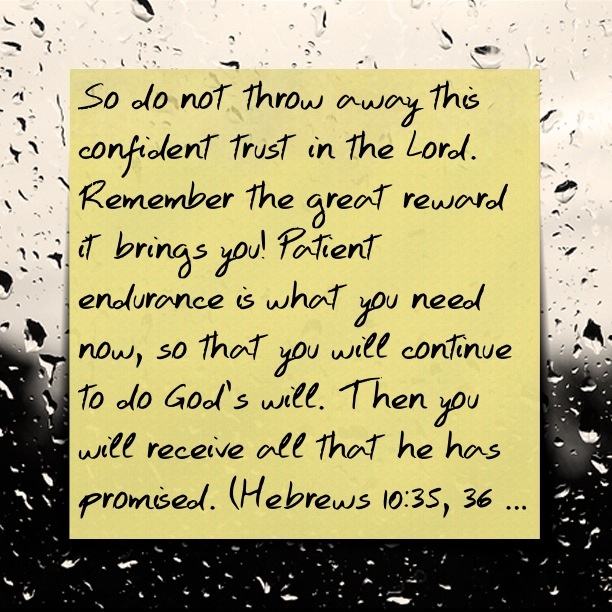 So do not throw away this
confident trust in the Lord.
Remember the great reward
it brings you! Patient
endurance is what you need
now, so that you will continue
to do God's will. Then you
will receive all that he has
promised. (Hebrews 10:35, 36 ...